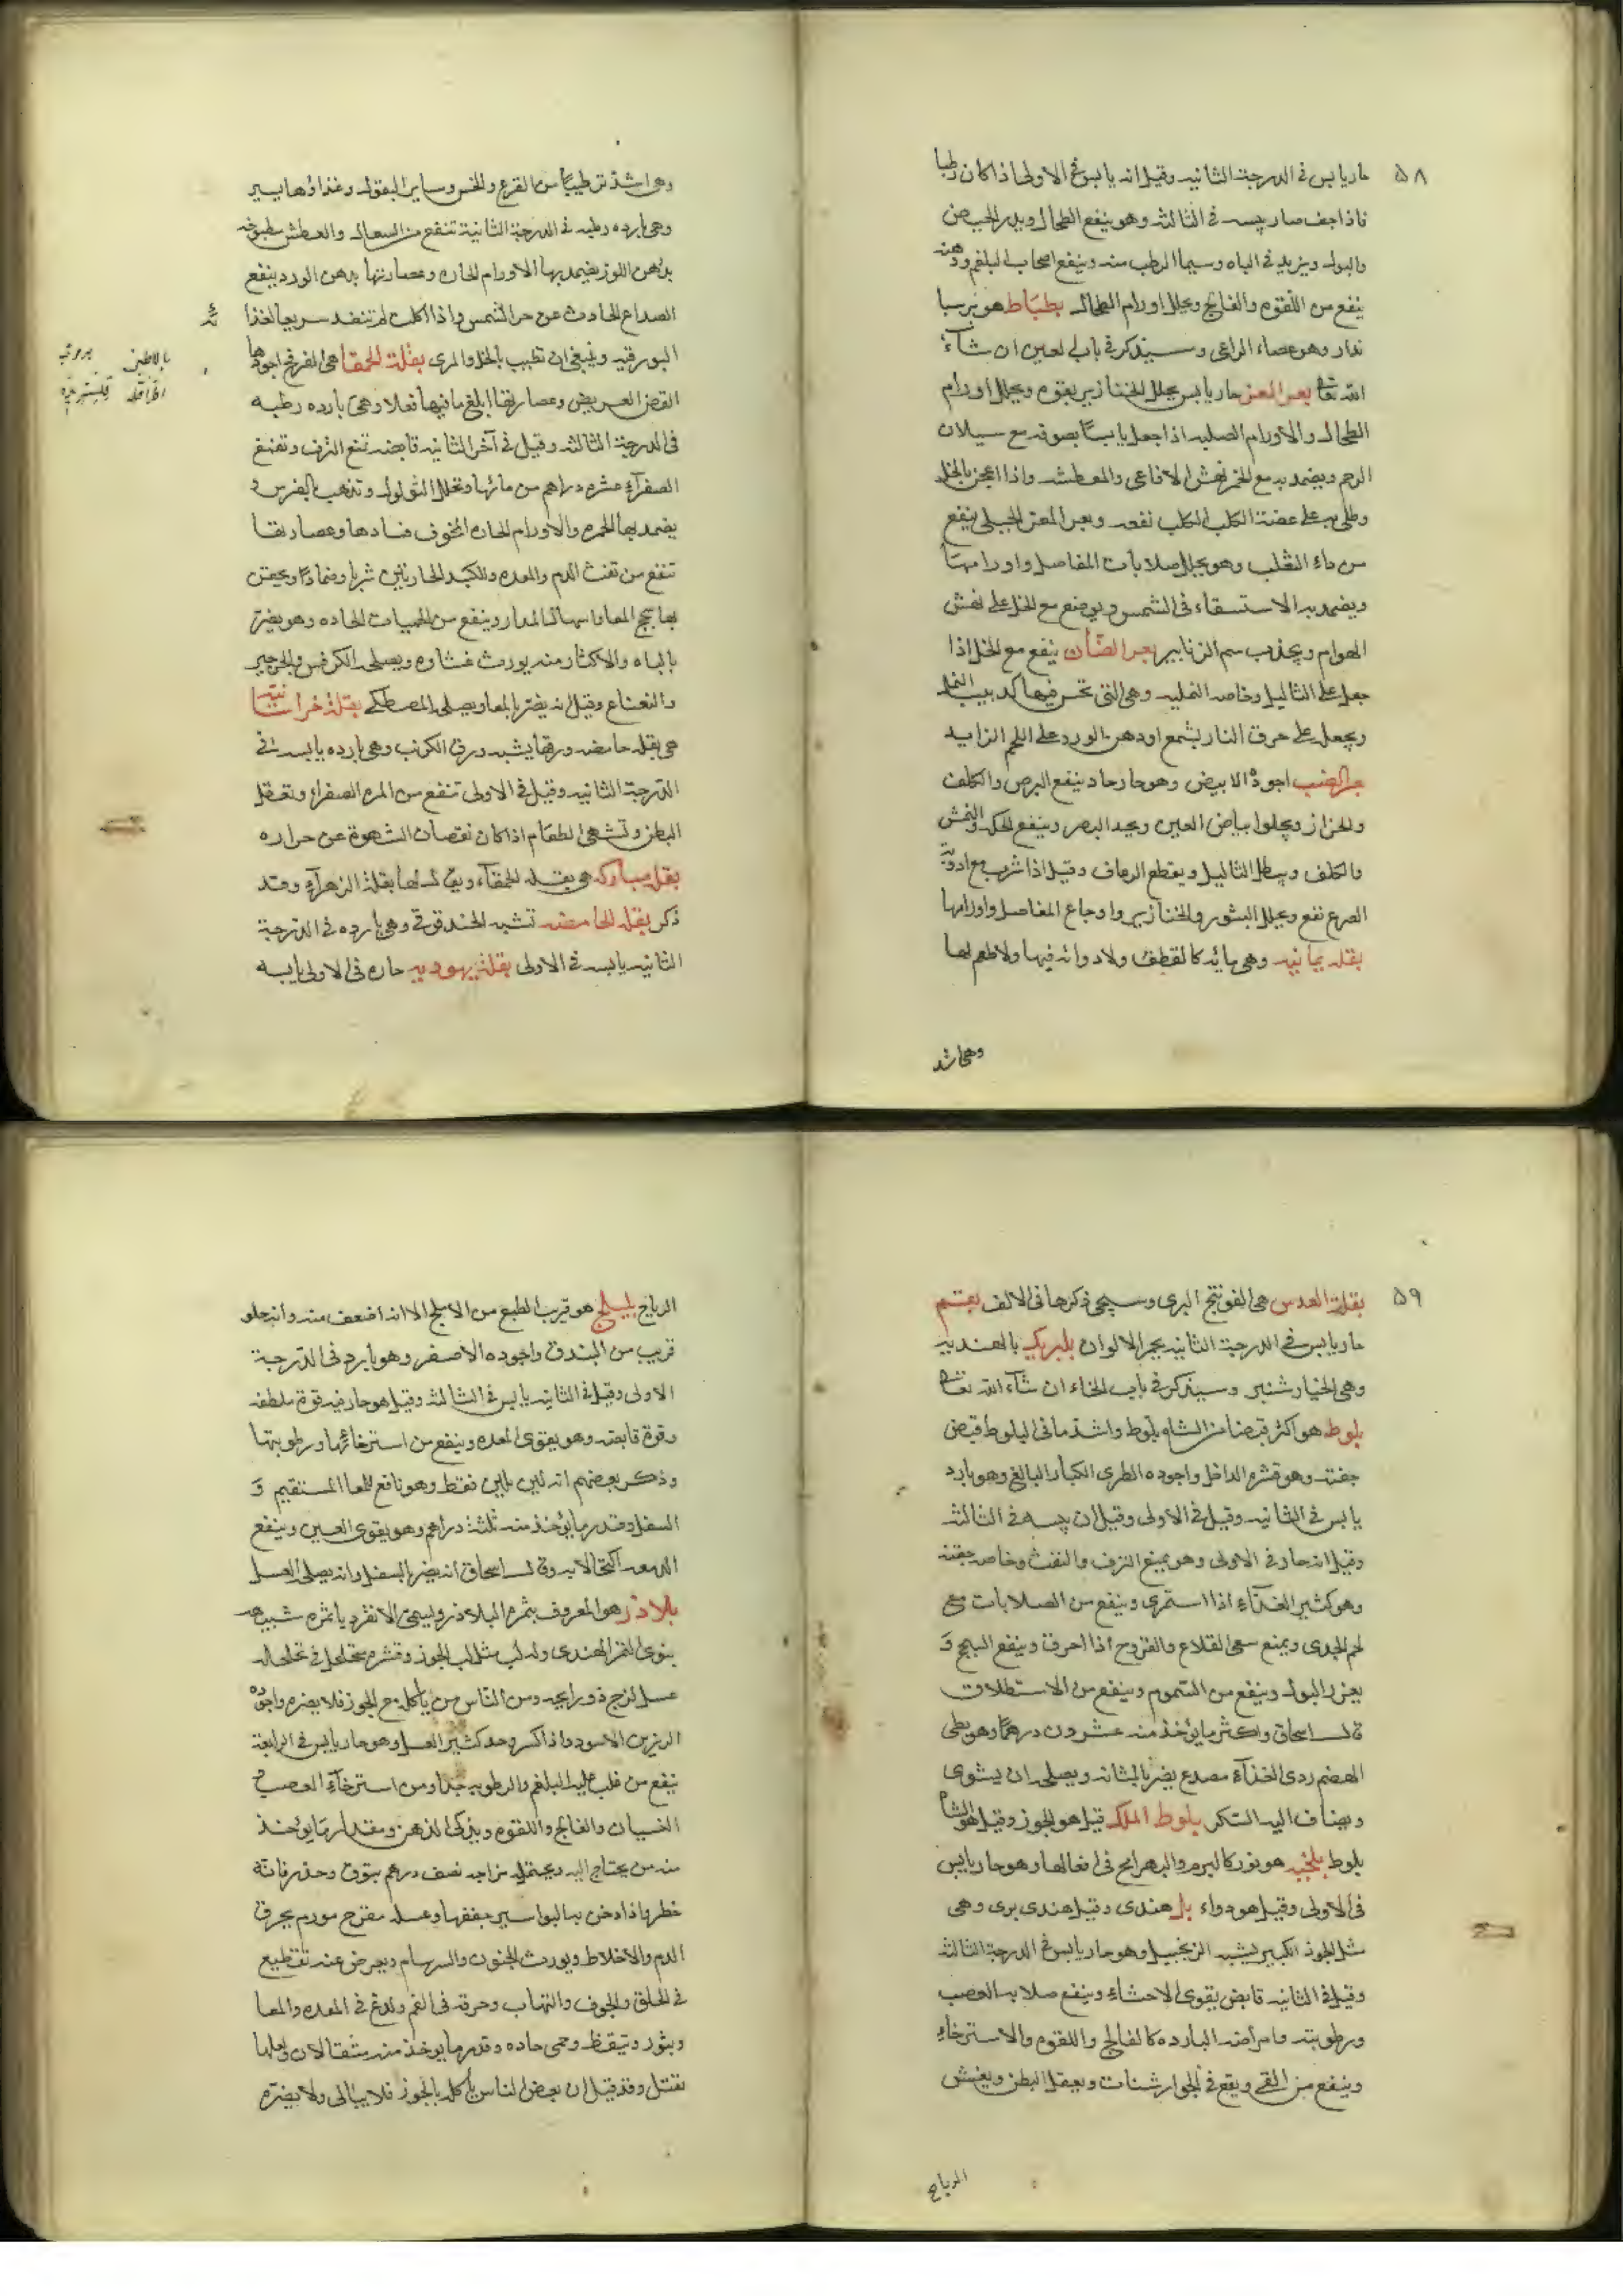 ٥٨
حار يابس في الدرجة الثانيه وقيل انه يابس في الاولى اذا كان رطبا
فاذا جف صار يبسه في الثالثه وهو ينفع الطحال ويدر الحيض
والبول ويزيد في الباه وسيما الرطب منه وينفع اصحاب البلغم ودهنه
ينفع من اللقوه والفالج ويحلل اورام الطحال بطباط هو برسيا
ندار وهو عصاء الراعي وسيذكر في باب العين ان شاء
الله تعا بعر المعز حار يابس يحلل الخنازير بقوه ويحلل اورام
الطحال والاورام الصلبه اذا جعل يابسا بصوفه مع سيلان
الرحم ويضمد به مع الخمر نهش الافاعي والمعطشه واذا اعجن بالخل
وطلى به على عضة الكلب الكلب نفعه وبعر المعز الجبلي ينفع
من داء الثعلب وهو يحلل صلابات المفاصل واورامها
ويضمد به الاستسقاء في الشمس ويوضع مع الخل على نهش
الهوام ويجذب سم الزنابير بعر الضأن ينفع مع الخل اذا
جعل على الثاليل وخاصه النمليه وهي التي تحس فيها كدبيب النمل
ويجعل على حرق النار بشمع او دهن الورد على اللحم الزايد
بعر الضب اجوده الابيض وهو حار حاد ينفع البرص والكلف
والحزاز ويجلوا بياض العين ويحد البصر وينفع الحكه والنمش
والكلف ويبطل الثاليل ويقطع الرعاف وقيل اذا شرب مع ادوية
الصرع نفع ويحلل البثور والخنازير واوجاع المفاصل واورامها
بقله يمانيه وهي مائيه كالقطف ولا دوائيه فيها ولا طعم لها
وهي اشد
وهي اشد ترطيبا من القرع والخس وساير البقول وغذاؤها يسير
وهي بارده رطبه في الدرجة الثانية تنفع من السعال والعطش مطبوخه
بدهن اللوز يضمد بها الاورام الحاره وعصارتها بدهن الورد ينفع
الصداع الحادث عن حر الشمس واذا اكلت لم تنفد سريعا لغذا
البورقيه وينبغي ان تطيب بالخل والمرى بقلة الحمقا هي الفرفخ اجودها
الغض العريض وعصارتها ابلغ ما فيها فعلا وهي بارده رطبه
في الدرجة الثالثه وقيل في آخر الثانيه قابضه تمنع النزف وتقمع
الصفرآء عشره دراهم من مائها وتحلل الثولول وتذهب بالضرس و
يضمد بها الحمره والاورام الحاره المخوف فسادها وعصارتها
تنفع من نفث الدم والمعده والكبد الحارتين شربا وضمادا ويحقن
بها سحج المعا واسهال المدار وينفع من الحميات الحاده وهو يضر
بالباه والاكثار منه يورث غشاوه ويصلحه الكرفس والجرجير
والنعناع وقيل انه يضر بالمعا ويصلحه المصطكى بقلة خراسانيه
هي بقله حامضه ورقها يشبه ورق الكرنب وهي بارده يابسه في
الدرجة الثانيه وقيل في الاولى تنفع من المره الصفراء وتعقل
البطن وتشهى الطعام اذا كان نقصان الشهوة عن حراره
بقله مباركه هي بقله الحمقآء ويقال لها بقلة الزهرآء وقد
ذكر بقله الحامضه تشبه الحندقوقي وهي بارده في الدرجة
الثانيه يابسه في الاولى بقلة يهوديه حاره في الاولى يابسه
٥٩
بقلة العدس هي الفوتنج البرى وسيجى ذكرها في الالف بقم
حار يابس في الدرجة الثانيه يحمر الالوان بلبريك بالهنديه
وهي الخيار شنبر وسيذكر في باب الخاء ان شآء الله تعا
بلوط هو اكثر قبضا من الشاه بلوط واشد ما في البلوط قبض
جفته وهو قشره الداخل واجوده الطرى الكبار البالغ وهو بارد
يابس في الثانيه وقيل في الاولى وقيل ان يبسه في الثالثه
وقيل انه حار في الاولى وهو يمنع النزف والنفث وخاصه جفته
وهو كثير الغذآء اذا استمرى وينفع من الصلابات مع
لحم الجدى ويمنع سعى القلاع والقروح اذا احرق وينفع السحج و
يغزر البول وينفع من السموم وينفع من الاستطلاق
قال اسحاق واكثر ما يؤخذ منه عشرون درهما وهو بطى
الهضم ردى الغذآء مصدع يضر بالمثانه ويصلحه ان يشوى
ويضاف اليه السكر بلوط الملك قيل هو الجوز وقيل هو الشاه
بلوط بلخيه هو نور كالبرم والبهرامج في افعالها وهو حار يابس
في الاولى وقيل هو دواء بل هندى وقيل هندى برى وهي
مثل الجوز الكبير يشبه الزنجبيل وهو حار يابس في الدرجة الثالثه
وقيل في الثانيه قابض يقوى الاحشاء وينفع صلابه العصب
ورطوبته وامراضه البارده كالفالج واللقوه والاسترخاء
وينفع من القى ويقع في الجوارشنات ويعقل البطن ويفش
الرياح
الرياح بليلج هو قريب الطبع من الاملج الا انه اضعف منه وانه حلو
قريب من البندق واجوده الاصفر وهو بارد في الدرجة
الاولى وقيل في الثانيه يابس في الثالثه وقيل هو حار فيه قوة ملطفه
وقوة قابضه وهو يقوى المعده وينفع من استرخائها ورطوبتها
وذكر بعضهم انه لين يلين فقط وهو نافع للمعا المستقيم و
السفل وقدر ما يؤخذ منه ثلثة دراهم وهو يقوى العين وينفع
الدمعه اكتحالا به وقال اسحاق انه يضر بالسفل وانه يصلحه العسل
بلاذر هو المعروف بثمرة البلاذر ويسمى الانقرديا ثمره شبيهه
بنوى التمر الهندى ولبه لب مثل لب الجوز وقشره متخلخل في تخلخله
عسل لزج ذو رايحه ومن الناس من يأكله مع الجوز فلا يضره واجوده
الرزين الاسود واذا كسر وجد كثير العسل وهو حار يابس في الرابعة
ينفع من غلب عليه البلغم والرطوبه جدا ومن استرخآء العصب
النسيان والفالج واللقوه ويذكى الذهن ومقدار ما يؤخذ
منه من يحتاج اليه ويحتمله مزاجه نصف درهم بتوق وحذر فانه
خطر واذا دخن به البواسير جففها وعسله مقرح مورم يحرق
الدم والاخلاط ويورث الجنون والسرسام ويعرض عنه تقطيع
في الحلق والجوف والتهاب وحرقه في الفم ولدغ في المعده والمعا
وبثور وتيقظ وحمى حاده وقدر ما يوخذ منه مثقالان ولعلها
تقتل وقد قيل ان بعض الناس يأكله بالجوز فلا يبالى ولا يضره